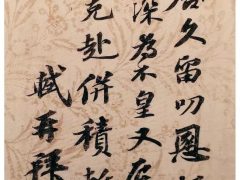 久留叨恩
深為不皇又
免赴併積
軾再拜